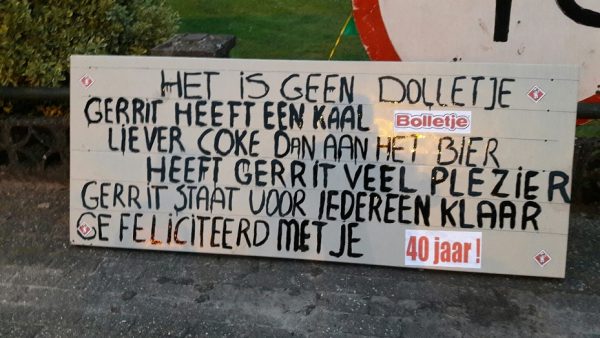 HET IS GEEN DOLLETJE
GERRIT HEEFT EEN KAAL Bolletje
LIEVER COKE DAN AAN HET BIER
HEEFT GERRIT VEEL PLEZIER
GERRIT STAAT VOOR IEDEREEN KLAAR
GEFELICITEERD MET JE 40 jaar!